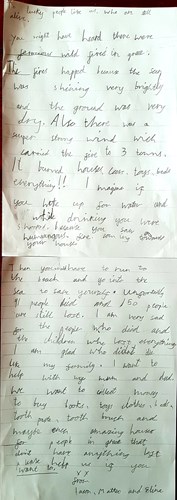 all lucky people like us who are all
alive.
you might have heard there were
wild fires in
The fires happed because the sun
was shining very brightly
and the ground was very
dry. Also there was a
super strong wind wich
carried the fire to 3 towns.
It burned houses, cars, toys, beds
everything!! I magine if
you woke up for water and
while drinking you were
because you saw
fire coming towards
your house!
Then you would have to run to
the beach and go into the
sea to save yourself.
91 people died and 150 people
are still lost. I am very sad
for the people who died and
the children who lost everything
I am glad who didn't
like my family. I want to
help with my mum and dad.
We want to collect money
to buy books, toys, clothes, beds,
tooth paste, tooth brush and
maybe even amazing houses
for people in that
don't have anything left
help us if you
want to. xx
from
Jason, Matteo and Elina